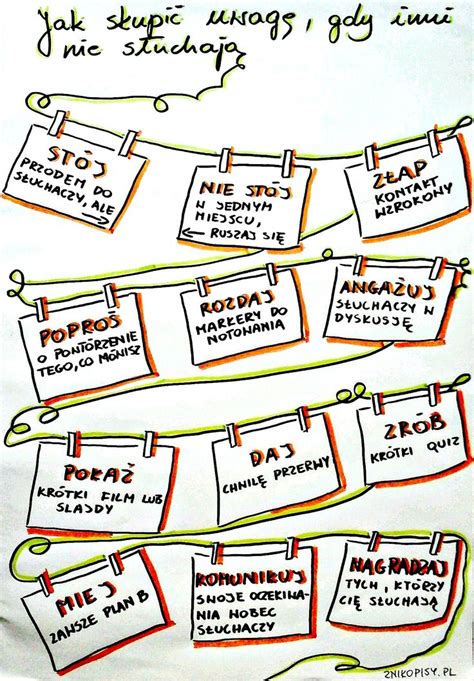 Jak skupić uwagę, gdy inni
nie słuchają
STÓJ
PRZODEM DO
SŁUCHACZY, ALE
NIE STÓJ
W JEDNYM
MIEJSCU,
RUSZAJ SIĘ
ZŁAP
KONTAKT
WZROKOWY
POPROŚ
O POWTÓRZENIE
TEGO, CO MÓWISZ
ROZDAJ
MARKERY DO
NOTOWANIA
ANGAŻUJ
SŁUCHACZY W
DYSKUSJĘ
POKAŻ
KRÓTKI FILM LUB
SLAJDY
DAJ
CHWILĘ PRZERWY
ZRÓB
KRÓTKI QUIZ
MIEJ
ZAWSZE PLAN B
KOMUNIKUJ
SWOJE OCZEKIWA-
NIA WOBEC
SŁUCHACZY
NAGRADZAJ
TYCH, KTÓRZY
CIĘ SŁUCHAJĄ
ZNIKOPISY.PL